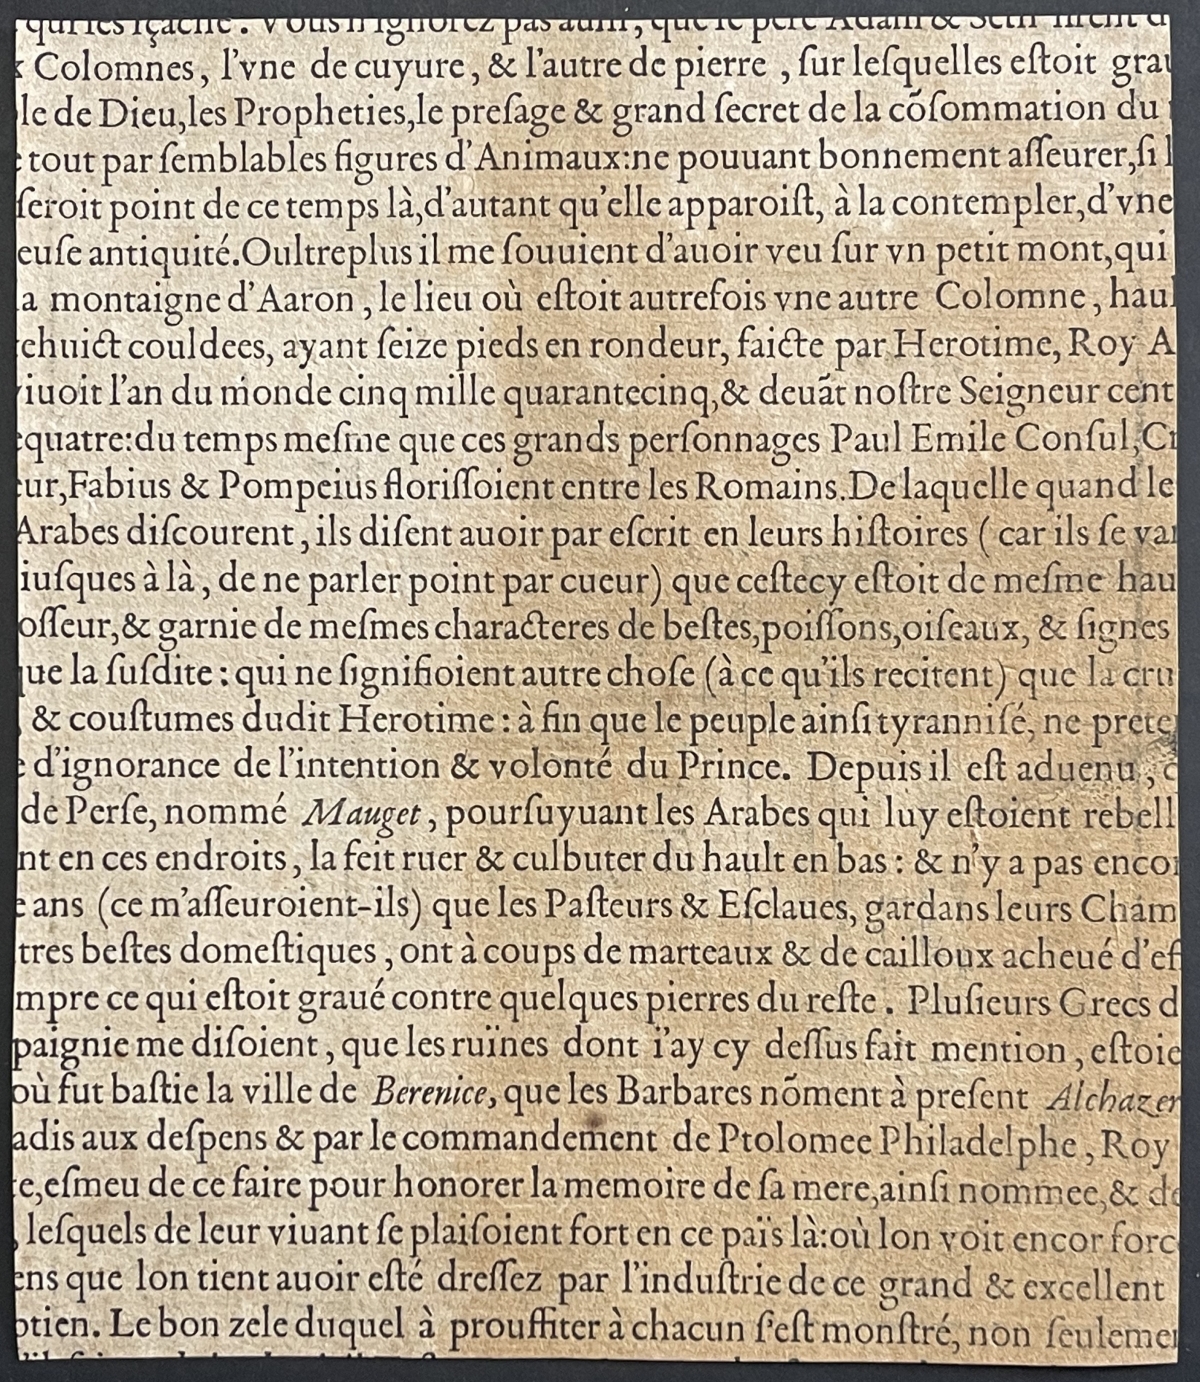 qui les sçache. Vous n'ignorez pas aussi, que le pere Adam & Seth
Colomnes, l'vne de cuyure, & l'autre de pierre, ſur leſquelles eſtoit grau
le de Dieu,les Propheties,le preſage & grand ſecret de la cõſommation du
tout par ſemblables figures d'Animaux:ne pouuant bonnement aſſeurer,ſi l
ſeroit point de ce temps là,d'autant qu'elle apparoiſt, à la contempler,d'vne
euſe antiquité.Oultreplus il me ſouuient d'auoir veu ſur vn petit mont,qui
a montaigne d'Aaron, le lieu où eſtoit autrefois vne autre Colomne, haul
ehuict couldees, ayant ſeize pieds en rondeur, faicte par Herotime, Roy A
iuoit l'an du monde cinq mille quarantecinq,& deuãt noſtre Seigneur cent
quatre:du temps meſme que ces grands perſonnages Paul Emile Conſul,Cr
ur,Fabius & Pompeius floriſſoient entre les Romains.De laquelle quand le
Arabes diſcourent, ils diſent auoir par eſcrit en leurs hiſtoires (car ils ſe van
iuſques à là, de ne parler point par cueur) que ceſtecy eſtoit de meſme hau
oſſeur,& garnie de meſmes characteres de beſtes,poiſſons,oiſeaux, & ſignes
ue la ſuſdite: qui ne ſignifioient autre choſe (à ce qu'ils recitent) que la cru
, & couſtumes dudit Herotime: à fin que le peuple ainſi tyranniſé, ne prete
e d'ignorance de l'intention & volonté du Prince. Depuis il eſt aduenu,
de Perſe, nommé Mauget, pourſuyuant les Arabes qui luy eſtoient rebell
nt en ces endroits, la feit ruer & culbuter du hault en bas: & n'y a pas encor
e ans (ce m'aſſeuroient-ils) que les Paſteurs & Eſclaues, gardans leurs Cham
tres beſtes domeſtiques, ont à coups de marteaux & de cailloux acheué d'ef
mpre ce qui eſtoit graué contre quelques pierres du reſte. Pluſieurs Grecs d
paignie me diſoient, que les ruïnes dont i'ay cy deſſus fait mention, eſtoie
où fut baſtie la ville de Berenice, que les Barbares nõment à preſent Alchazer
adis aux deſpens & par le commandement de Ptolomee Philadelphe, Roy
e,eſmeu de ce faire pour honorer la memoire de ſa mere,ainſi nommee,& de
, leſquels de leur viuant ſe plaiſoient fort en ce païs là:où lon voit encor forc
ens que lon tient auoir eſté dreſſez par l'induſtrie de ce grand & excellent
ptien. Le bon zele duquel à prouffiter à chacun ſ'eſt monſtré, non ſeulemen